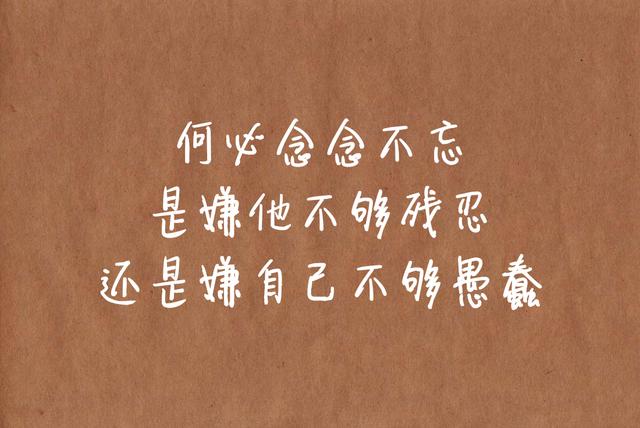 何必念念不忘
是嫌他不够残忍
还是嫌自己不够愚蠢